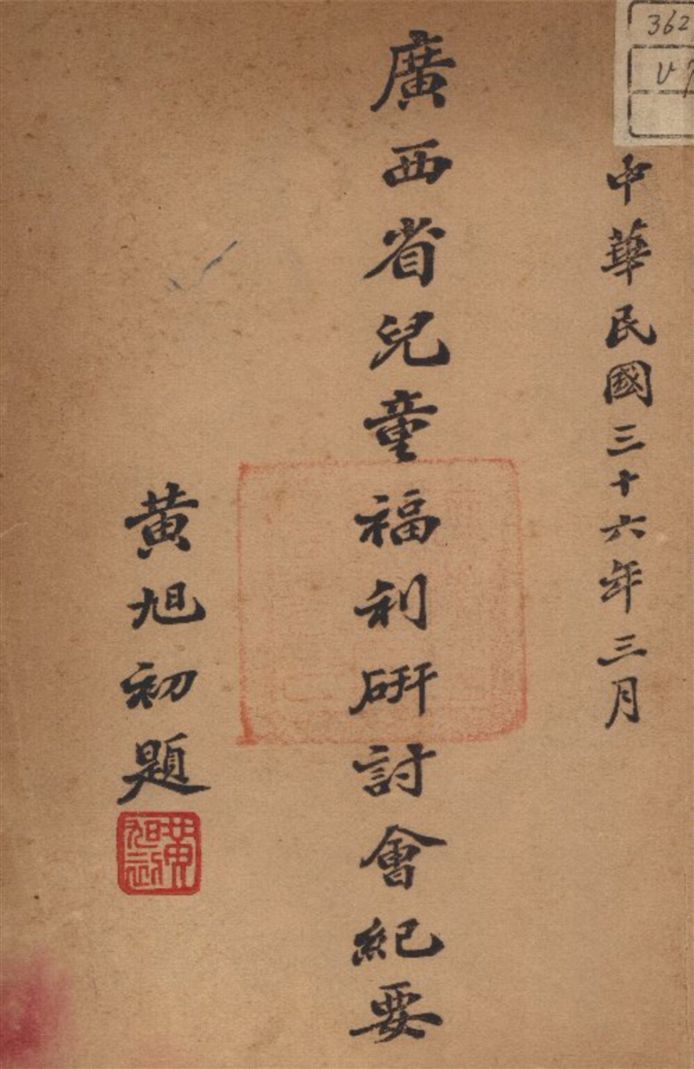 362
中華民國三十六年三月
廣西省兒童福利研討會紀要
黄旭初題
黄旭初